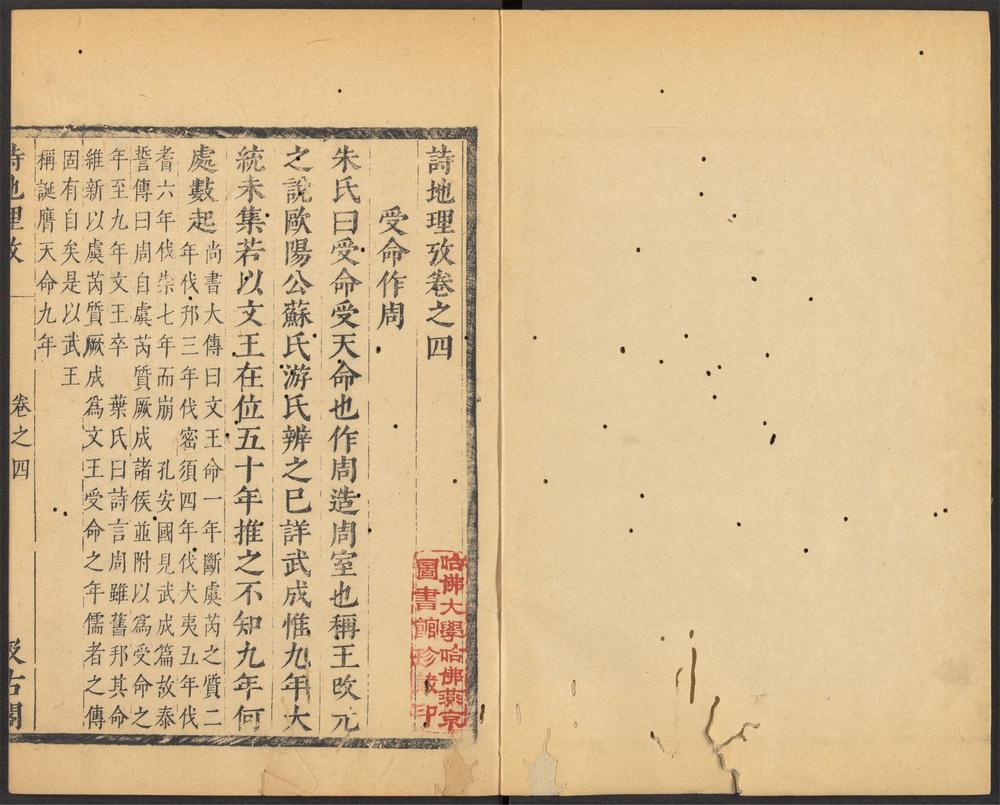 詩地理攷卷之四
受命作周
朱氏曰受命受天命也作周造周室也稱王改元
之說歐陽公蘇氏游氏辨之已詳武成惟九年大
統未集若以文王在位五十年推之不知九年何
處數起
尚書大傳曰文王命一年斷虞芮之質二
年伐邘三年伐密須四年伐犬夷五年伐
耆六年伐崇七年而崩 孔安國見武成篇故泰
誓傳曰周自虞芮質厥成諸侯並附以為受命之
年至九年文王卒 葉氏曰詩言周雖舊邦其命
維新以虞芮質厥成為文王受命之年儒者之傳
固有自矣是以武王
稱誕膺天命九年
詩地理攷
卷之四
汲古閣
哈佛大學哈佛燕京
圖書館珍藏印